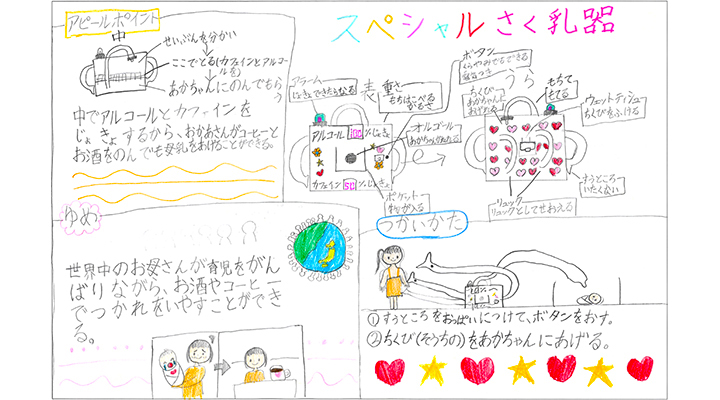 スペシャルさく乳器
アピールポイント
中
せいぶんを分かい
ここでとる(カフェインとアルコールを)
あかちゃんにのんでもらう
中でアルコールとカフェインを
じょきょするから、おかあさんがコーヒーと
お酒をのんでも母乳をあげることができる。
表
アラーム
重さ
もちはこべるかるさ
アルコール
じょきょ
オルゴール
カフェイン
ポケット
うら
ボタン
ちくび
もちて
もてる
ウェットティシュ
ちくびをふける
すうところ
いたくない
リュック
リュックとしてせおえる
ゆめ
世界中のお母さんが育児をがん
ばりながら、お酒やコーヒー
でつかれをいやすことができ
る。
つかいかた
①すうところをおっぱいにつけて、ボタンをおす。
②ちくび(そうちの)をあかちゃんにあげる。